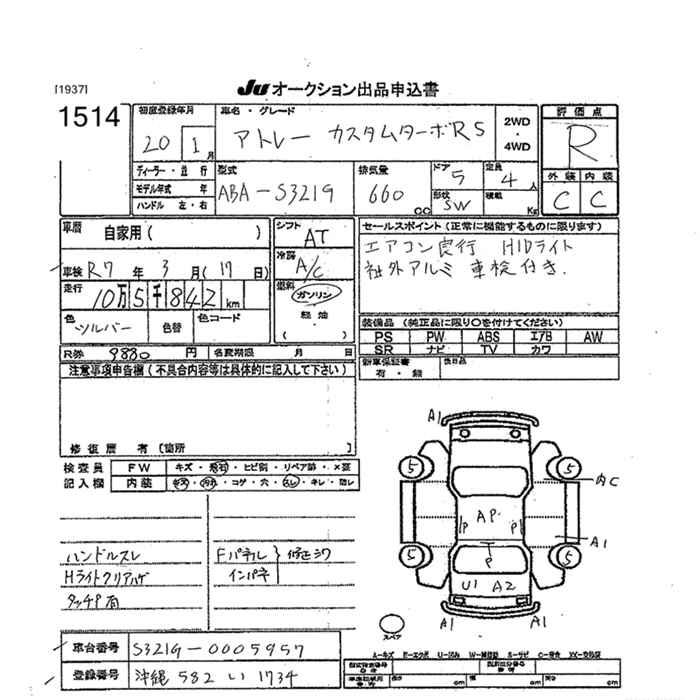 [1937]
Ju オークション出品申込書
1514
初度登録年月
20 1 月
車名・グレード
アトレー カスタムターボRS
2WD
・
4WD
評価点
R
ディーラー・並行
モデル年式 年
ハンドル 左・右
型式
ABA-S321G
排気量
660 cc
ドア
5
形状
SW
定員
4 人
積載
Kg
外装 内装
C C
車歴
自家用( )
車検 R7 年 3 月 (17 日)
走行
10万5千842 km
色
シルバー
色替
色コード
シフト
AT
冷房
A/C
燃料
ガソリン
軽油
( )
セールスポイント(正常に機能するものに限ります)
エアコン良行 HIDライト
社外アルミ 車検付き.
装備品 (純正品に限り○を付けてください)
PS PW ABS エアB AW
SR ナビ TV カワ
新車保証書
有・無
後日品
R券 9880 円
名変期限 月 日
注意事項申告欄(不具合内容等は具体的に記入して下さい)
修復歴 有 [箇所 ]
検査員
記入欄
FW キズ・飛石・ヒビ割・リペア跡・X要
内装 キズ・汚れ・コゲ・穴・スレ・キレ・腐レ
ハンドルスレ
Hライトクリアハゲ
タッチP有
Fパネル
インパネ
修正シワ
A1
5
5
内C
AP
P
P
P
A1
5
5
U1 A2
A1
A1
スペア
A-キズ E-エクボ U-凹み W-補修跡 S-サビ C-腐食 XX-交換済
車台番号 S321G-0005957
登録番号 沖縄 582 い 1734
長さ cm
cm
cm